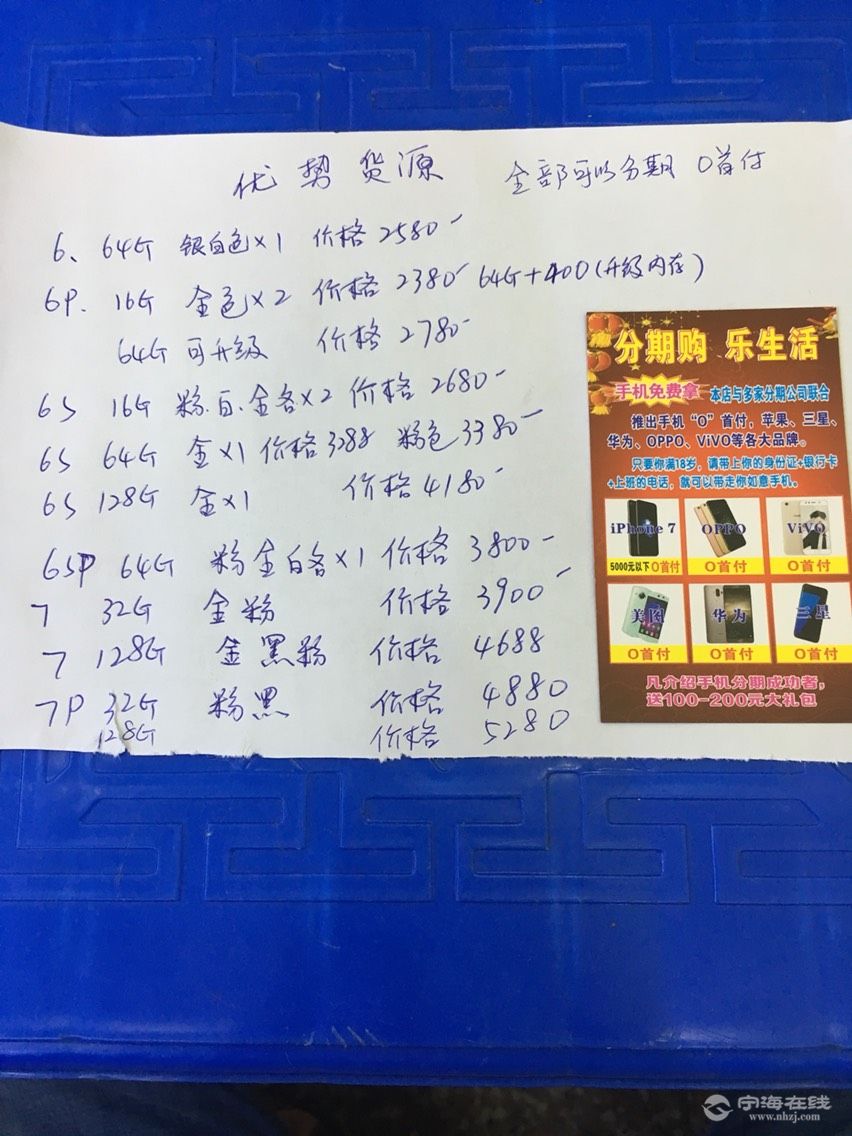 优势货源 全部可以分期 0首付
6、 64G 银白色×1 价格2580-
6P. 16G 金色×2 价格2380- 64G+400(升级内存)
64G可升级 价格2780-
6S 16G 粉.白.金各×2 价格2680-
6S 64G 金×1 价格3288 粉色3380-
6S 128G 金×1 价格4180-
6SP 64G 粉金白各×1 价格3800-
7 32G 金粉 价格3900-
7 128G 金黑粉 价格4688
7P 32G 粉黑 价格4880
128G 价格5280
分期购 乐生活
手机免费拿 本店与多家分期公司联合
推出手机“O”首付，苹果、三星、
华为、OPPO、ViVO等各大品牌。
只要你满18岁，请带上你的身份证+银行卡
+上班的电话，就可以带走你如意手机。
iPhone 7 OPPO ViVO
5000元以下O首付 O首付 O首付
美图 华为 三星
O首付 O首付 O首付
凡介绍手机分期成功者，
送100-200元大礼包
宁海在线
www.nhzj.com